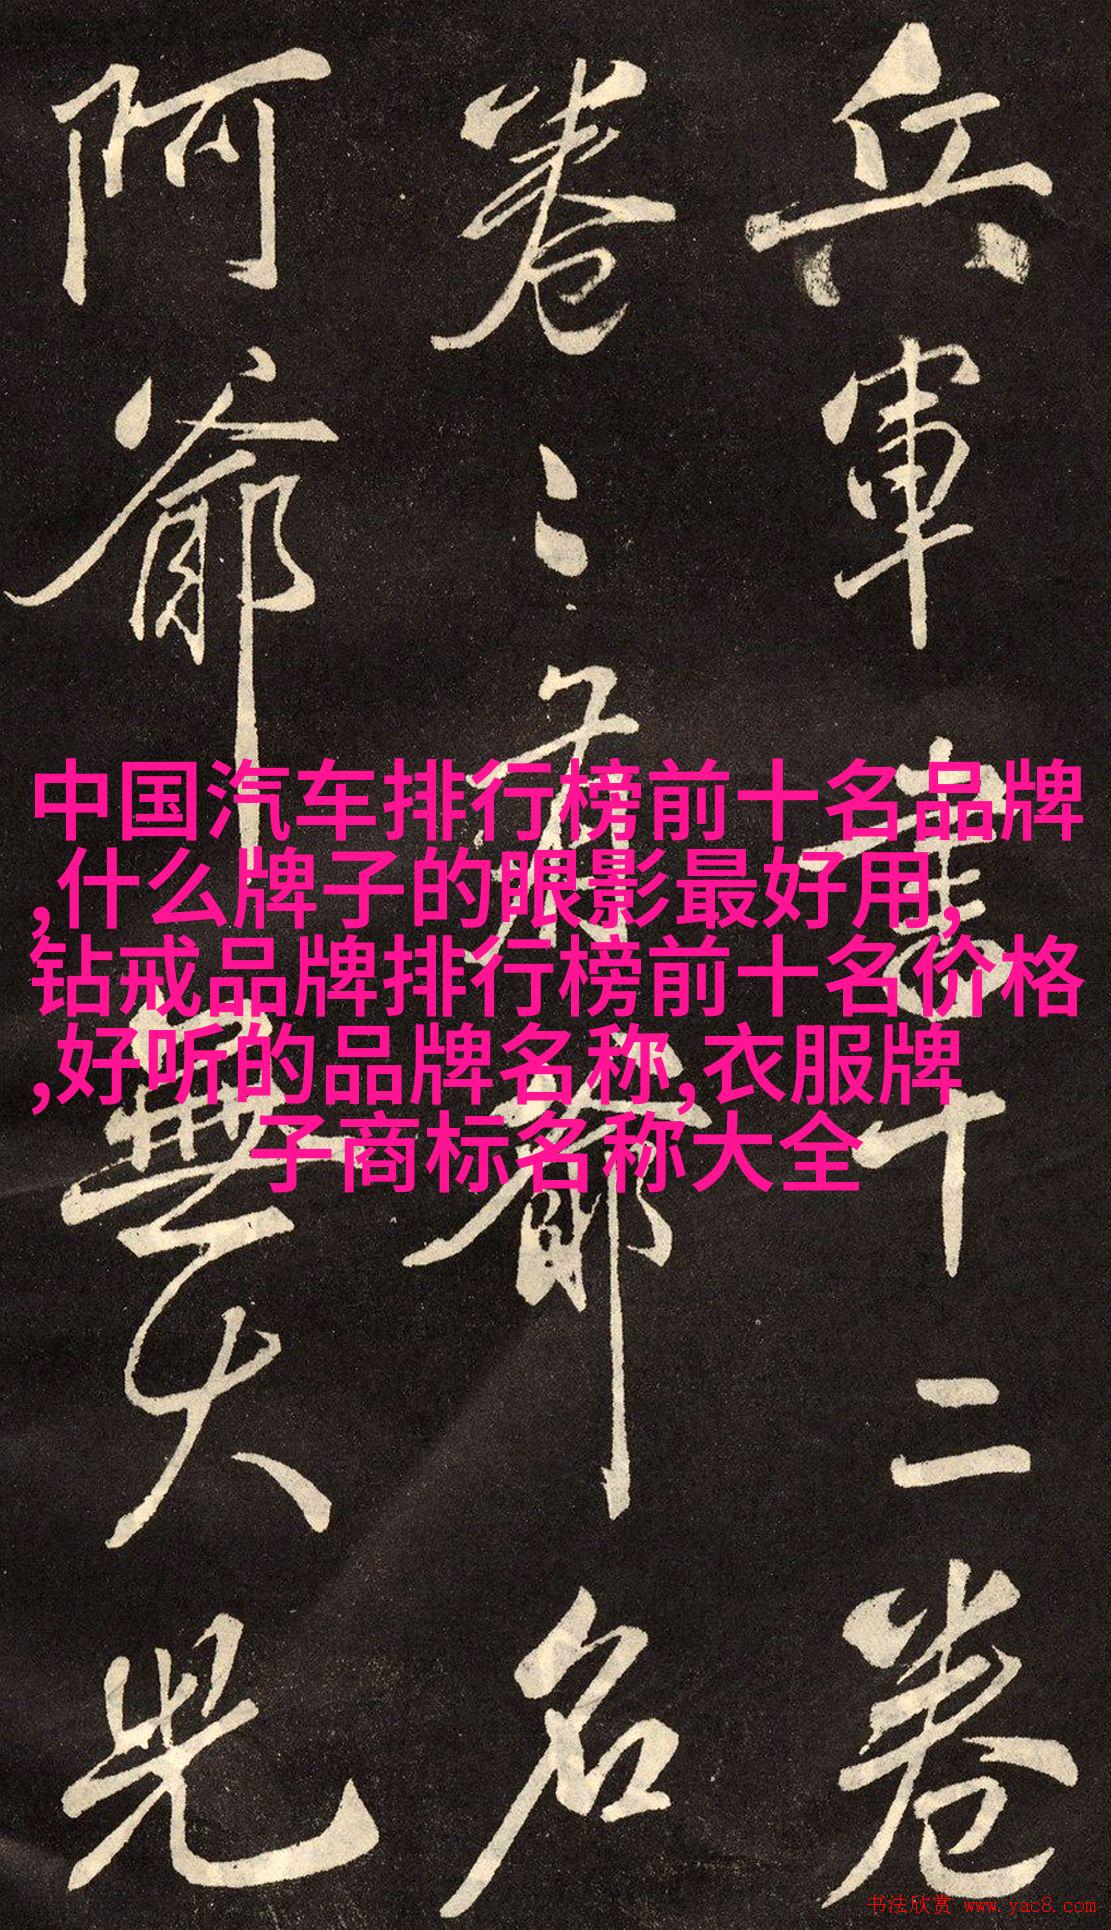 兵軍書十二卷
卷〻有爺名
阿爺無大兒
中国汽车排行榜前十名品牌
,什么牌子的眼影最好用,
钻戒品牌排行榜前十名价格
,好听的品牌名称,衣服牌
子商标名称大全
书法欣赏 www.yac8.com